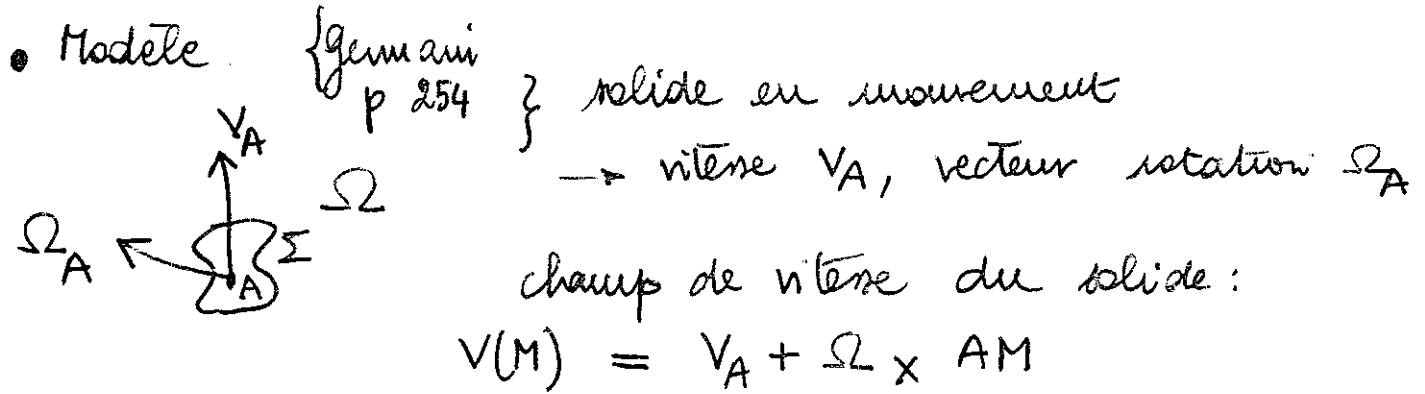 • Modèle {Germani
p 254 } solide en mouvement
→ vitesse V_A, vecteur rotation Ω_A
V_A
Ω
Ω_A
Σ
A
champ de vitesse du solide :
V(M) = V_A + Ω × AM